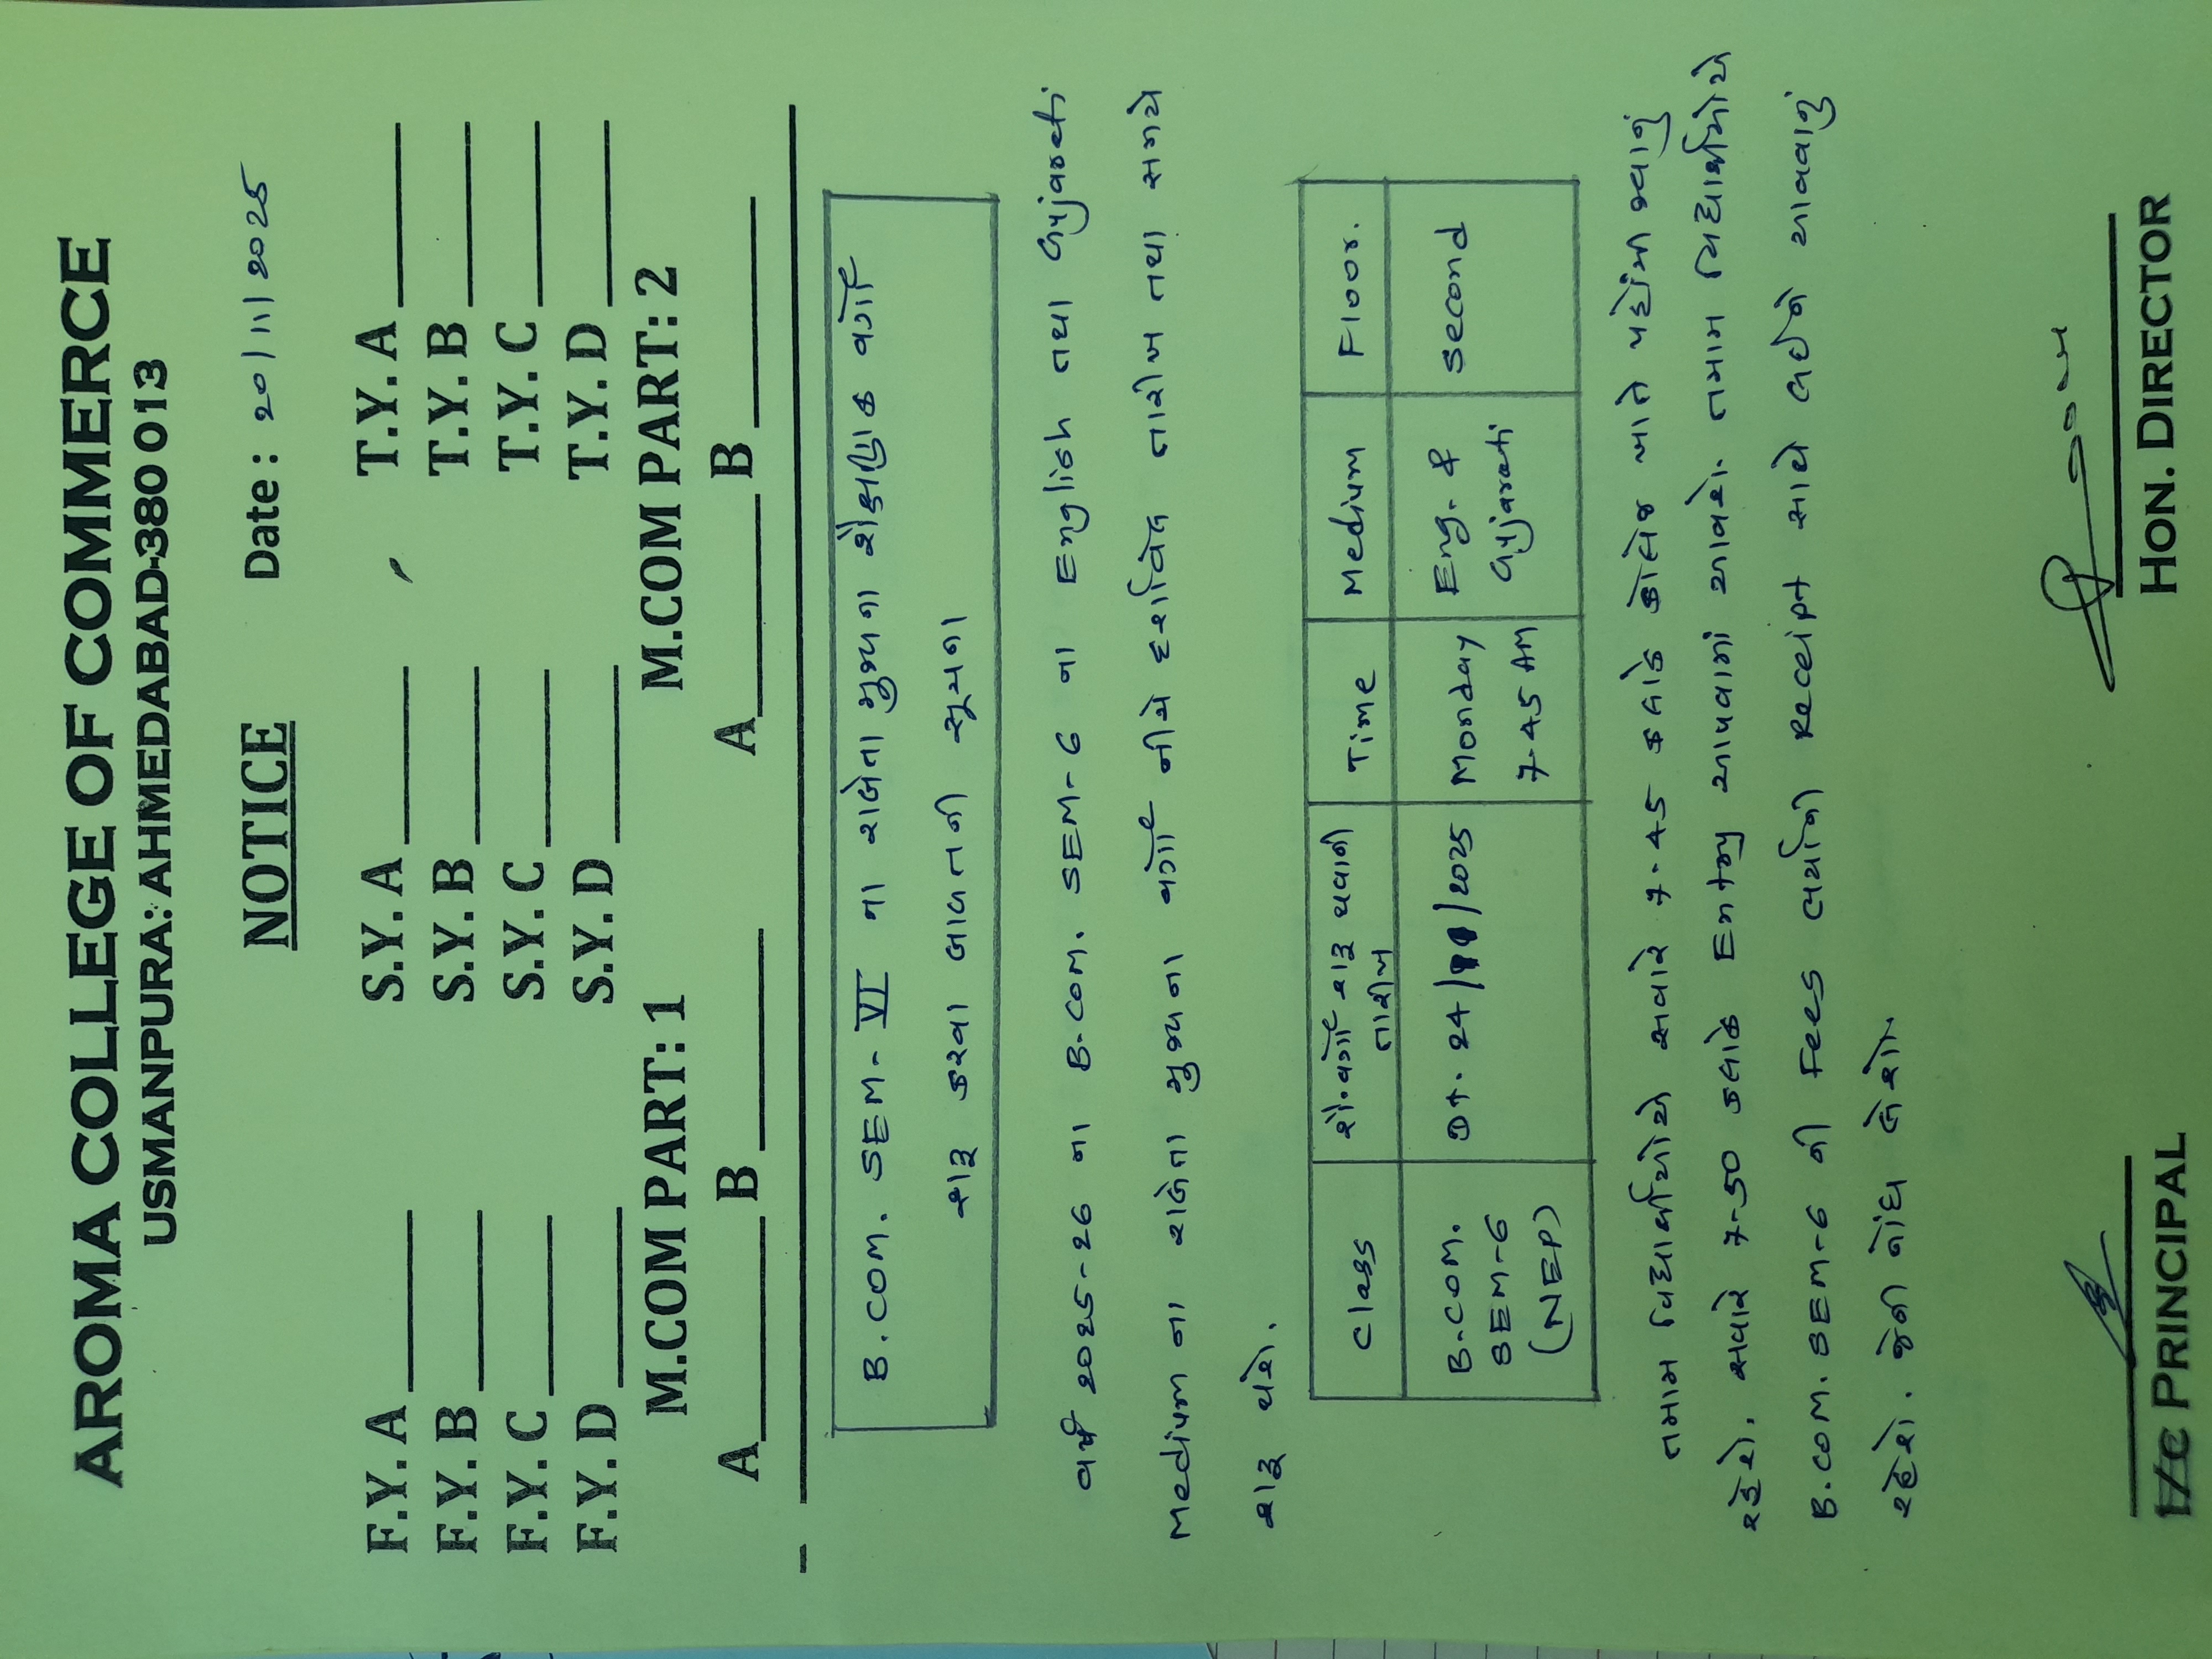 AROMA COLLEGE OF COMMERCE
USMANPURA: AHMEDABAD-380 013
NOTICE Date: 20/11/2025
F.Y. A S.Y. A T.Y. A
F.Y. B S.Y. B T.Y. B
F.Y. C S.Y. C T.Y. C
F.Y. D S.Y. D T.Y. D
M.COM PART: 1 M.COM PART: 2
A B A B
B.COM. SEM-VI ના રાબેતા મુજબના શૈક્ષણિક વર્ગો
શરૂ કરવા બાબતની સૂચના
વર્ષ 2025-26 ના B.COM. SEM-6 ના English તથા Gujarati
Medium ના રાબેતા મુજબના વર્ગો નીચે દર્શાવેલ તારીખ તથા સમયે
શરૂ થશે.
Class શૈ.વર્ગો શરૂ થવાની Time Medium Floor.
તારીખ
B.COM. Dt. 24/11/2025 Monday Eng. & Second
SEM-6 7-45 AM Gujarati
(NEP)
તમામ વિદ્યાર્થીઓએ સવારે 7-45 કલાકે કોલેજ ખાતે પહોંચી જવાનું
રહેશે. સવારે 7-50 કલાકે Entry આપવામાં આવશે. તમામ વિદ્યાર્થીઓએ
B.COM. SEM-6 ની Fees ભર્યાની Receipt સાથે લઈને આવવાનું
રહેશે. જેની નોંધ લેશો.
I/C PRINCIPAL HON. DIRECTOR